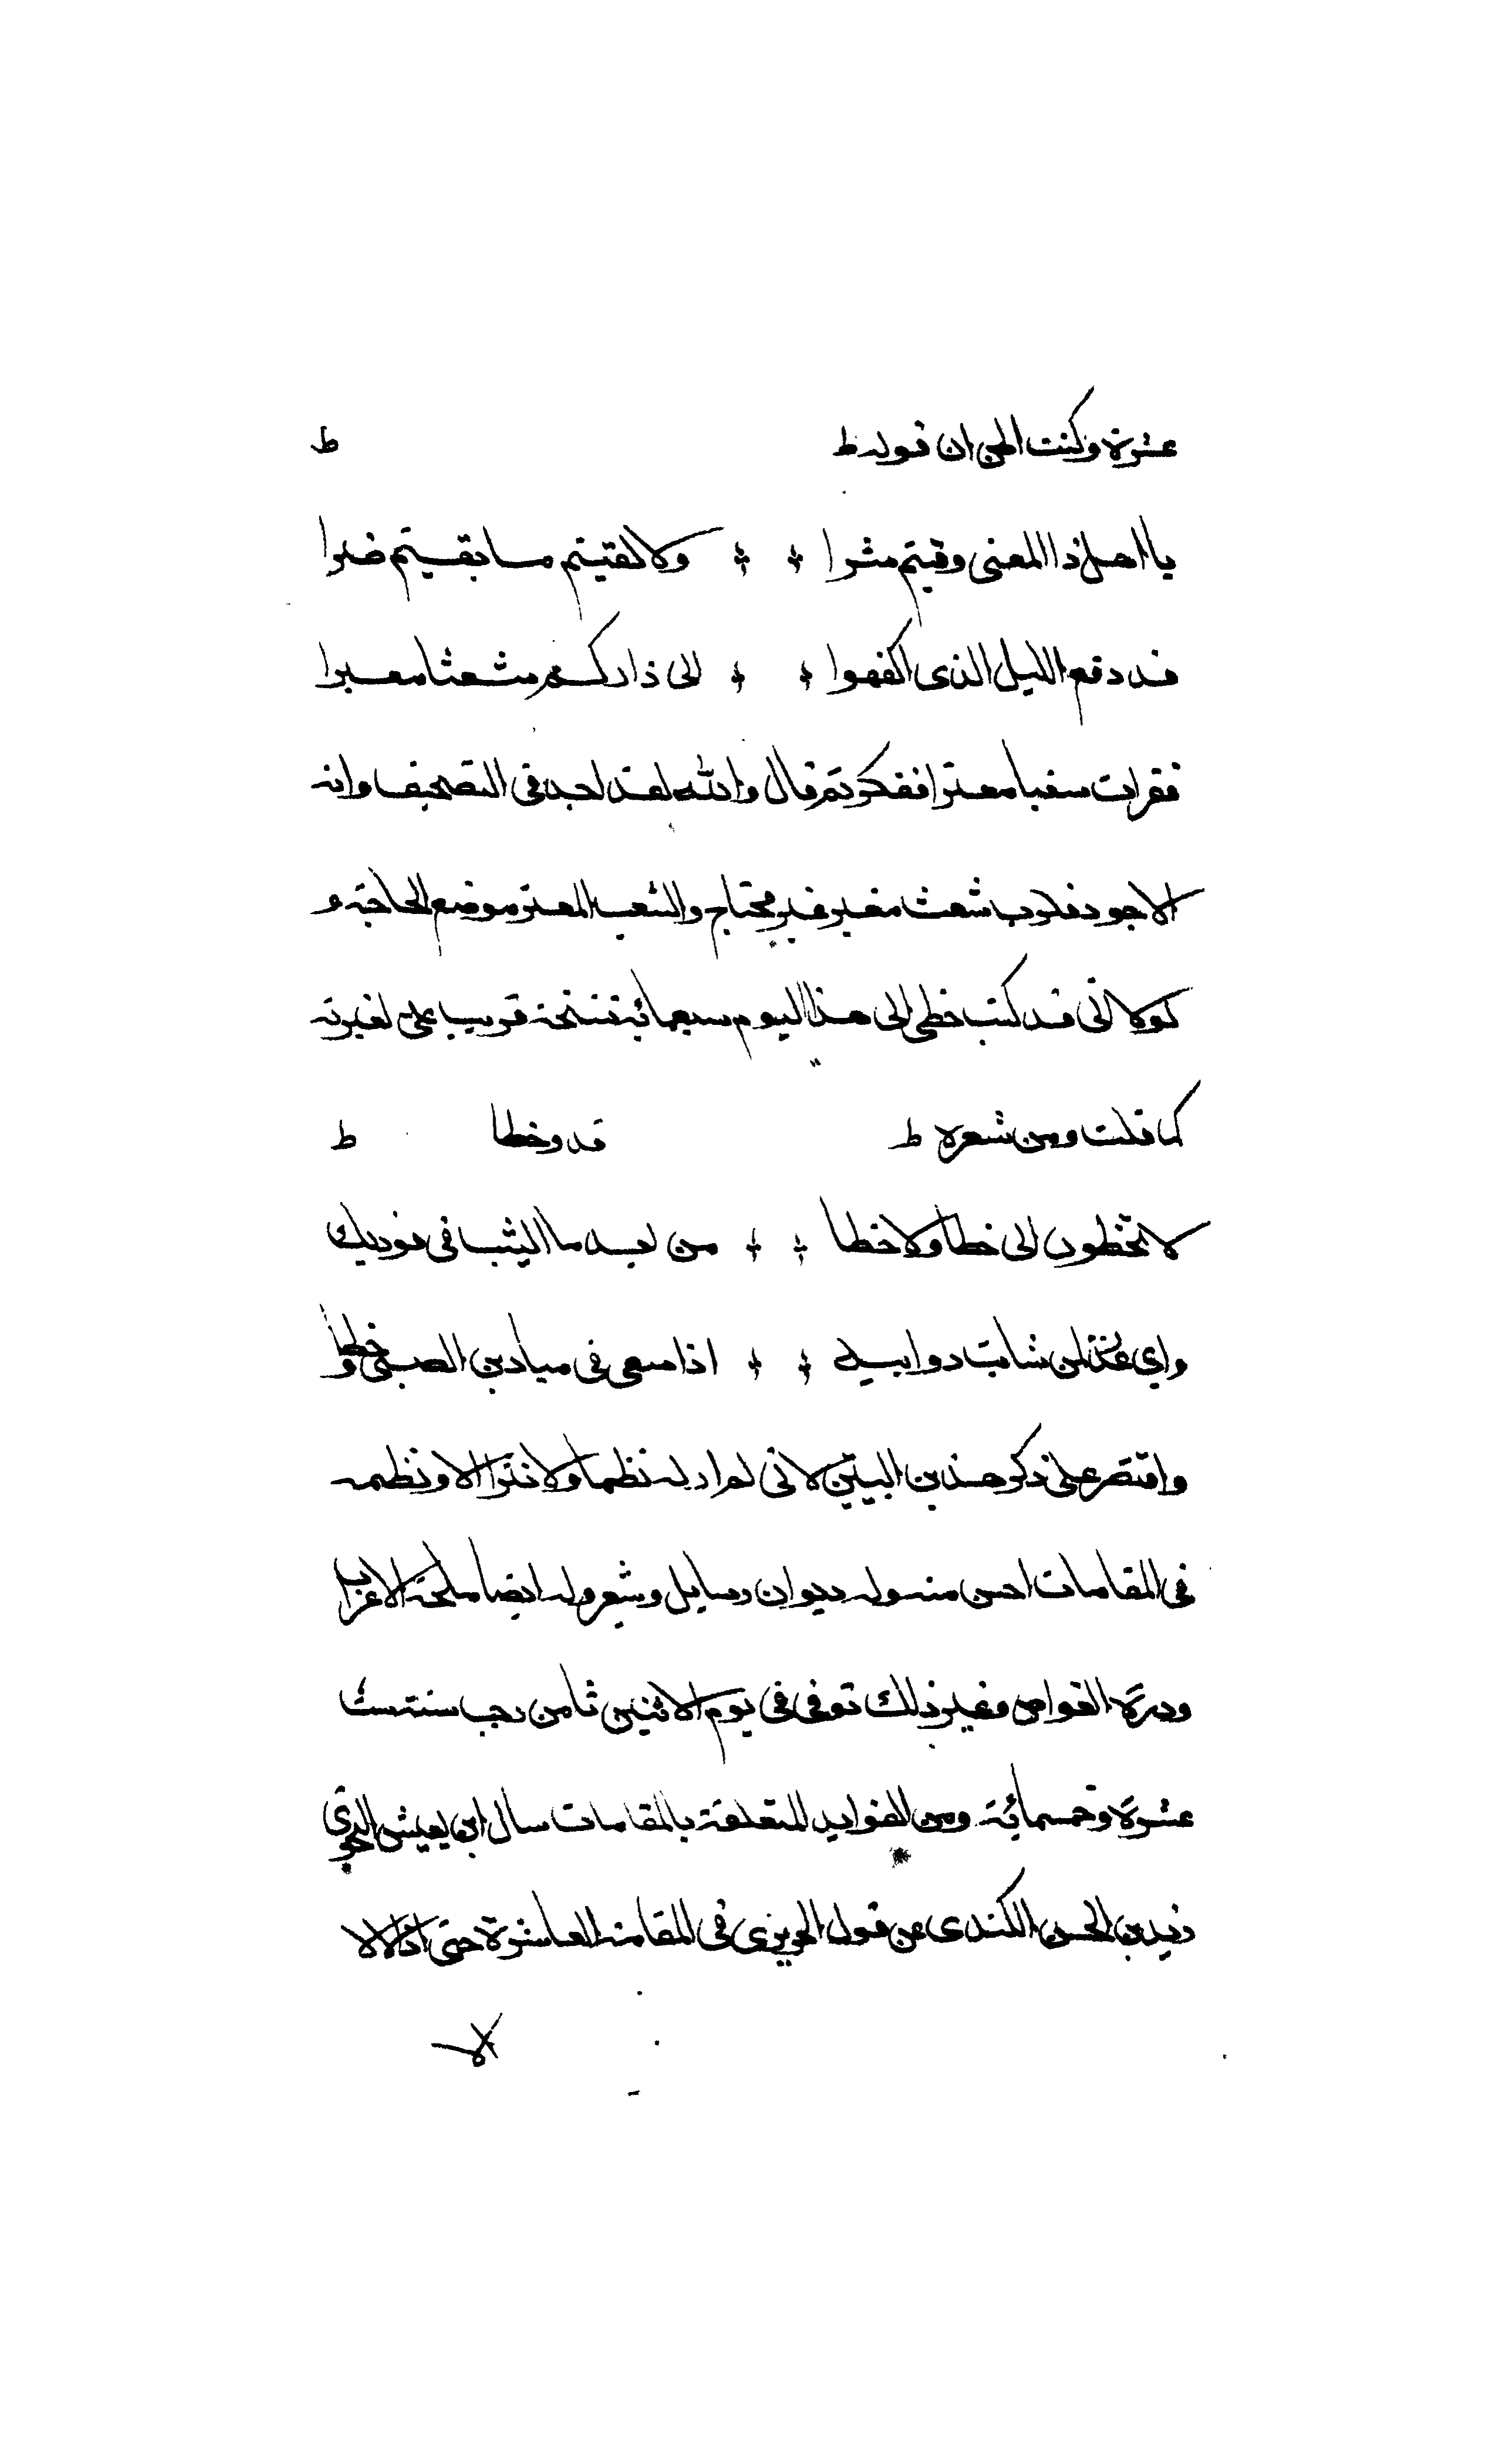 عشرة وكنت اظن ان قوله ط ط
يا اهل ذا المغنى وقيتم شرا ولا لقيتم ما بقيتم ضرا
قد دفع الليل الذى اكفهرا الى ذاركم شعثا مغبرا
فقرات سغبا معترا ففكر ثم قال والله لقد اجد فى التصحيف وانه
الاجود فلرب شعث مغبر غير محتاج والشعب المعتر موضع الحاجة و
لولا انى قد كتبت خطى الى هذا اليوم سبعمائة نسخة قريب على لغيرته
كما قلت ومن شعره ط قد وخطا ط
لا تخطون الى خطا ولا خطا من بعد ما الشيب فى فوديك
واي عذر لمن شابت دوابيه اذا سعى فى ميادين الصبى وخطا
واقتصر على ذكر هذين البيتين لانى لم ار له نظما ولا نثرا الا ونظمه
فى المقامات احسن منه وله ديوان رسايل وشعر وله ايضا ملحة الاعراب
ودرة الغواص وغير ذلك توفى فى يوم الاثنين ثامن رجب سنة ست
عشرة وخمسمائة ومن الفوايد المتعلقة بالمقامات سال ابن يعيش النحوي
زيد بن الحسن الكندى عن قول الحريرى فى المقامة العاشرة حتى اذا لالا
لا